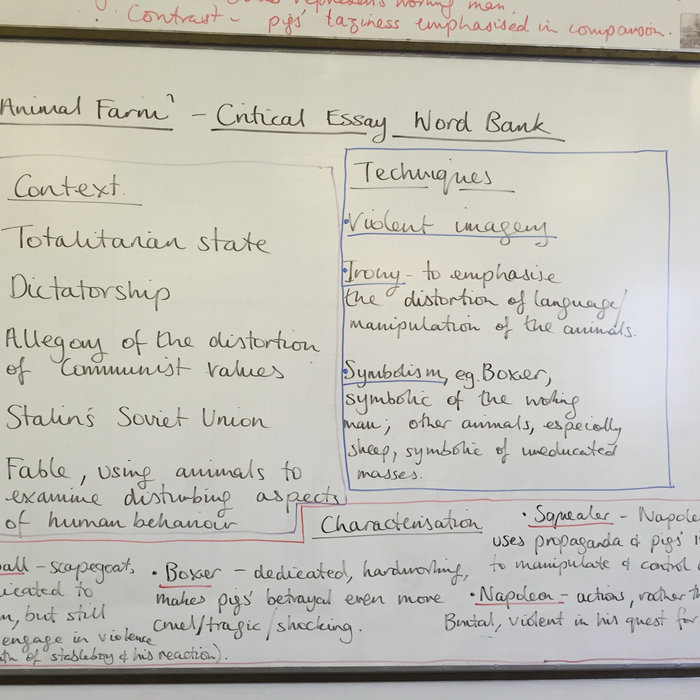 represents working man.
Contrast - pigs' laziness emphasised in comparison.
Animal Farm' - Critical Essay Word Bank
Context.
Totalitarian state
Dictatorship
Allegory of the distortion
of Communist values
Stalin's Soviet Union
Fable, using animals to
examine disturbing aspects
of human behaviour
Techniques
•Violent imagery
•Irony - to emphasise
the distortion of language/
manipulation of the animals.
•Symbolism, eg. Boxer,
symbolic of the working
man; other animals, especially
sheep, symbolic of uneducated
masses.
Characterisation
ball - scapegoat,
icated to
m, but still
engage in violence
th of stableboy & his reaction).
• Boxer - dedicated, hardworking,
makes pigs' betrayal even more
cruel/tragic/shocking.
• Squealer - Napole
uses propaganda & pigs'
to manipulate & control
• Napoleon - actions, rather th
Brutal, violent in his quest for